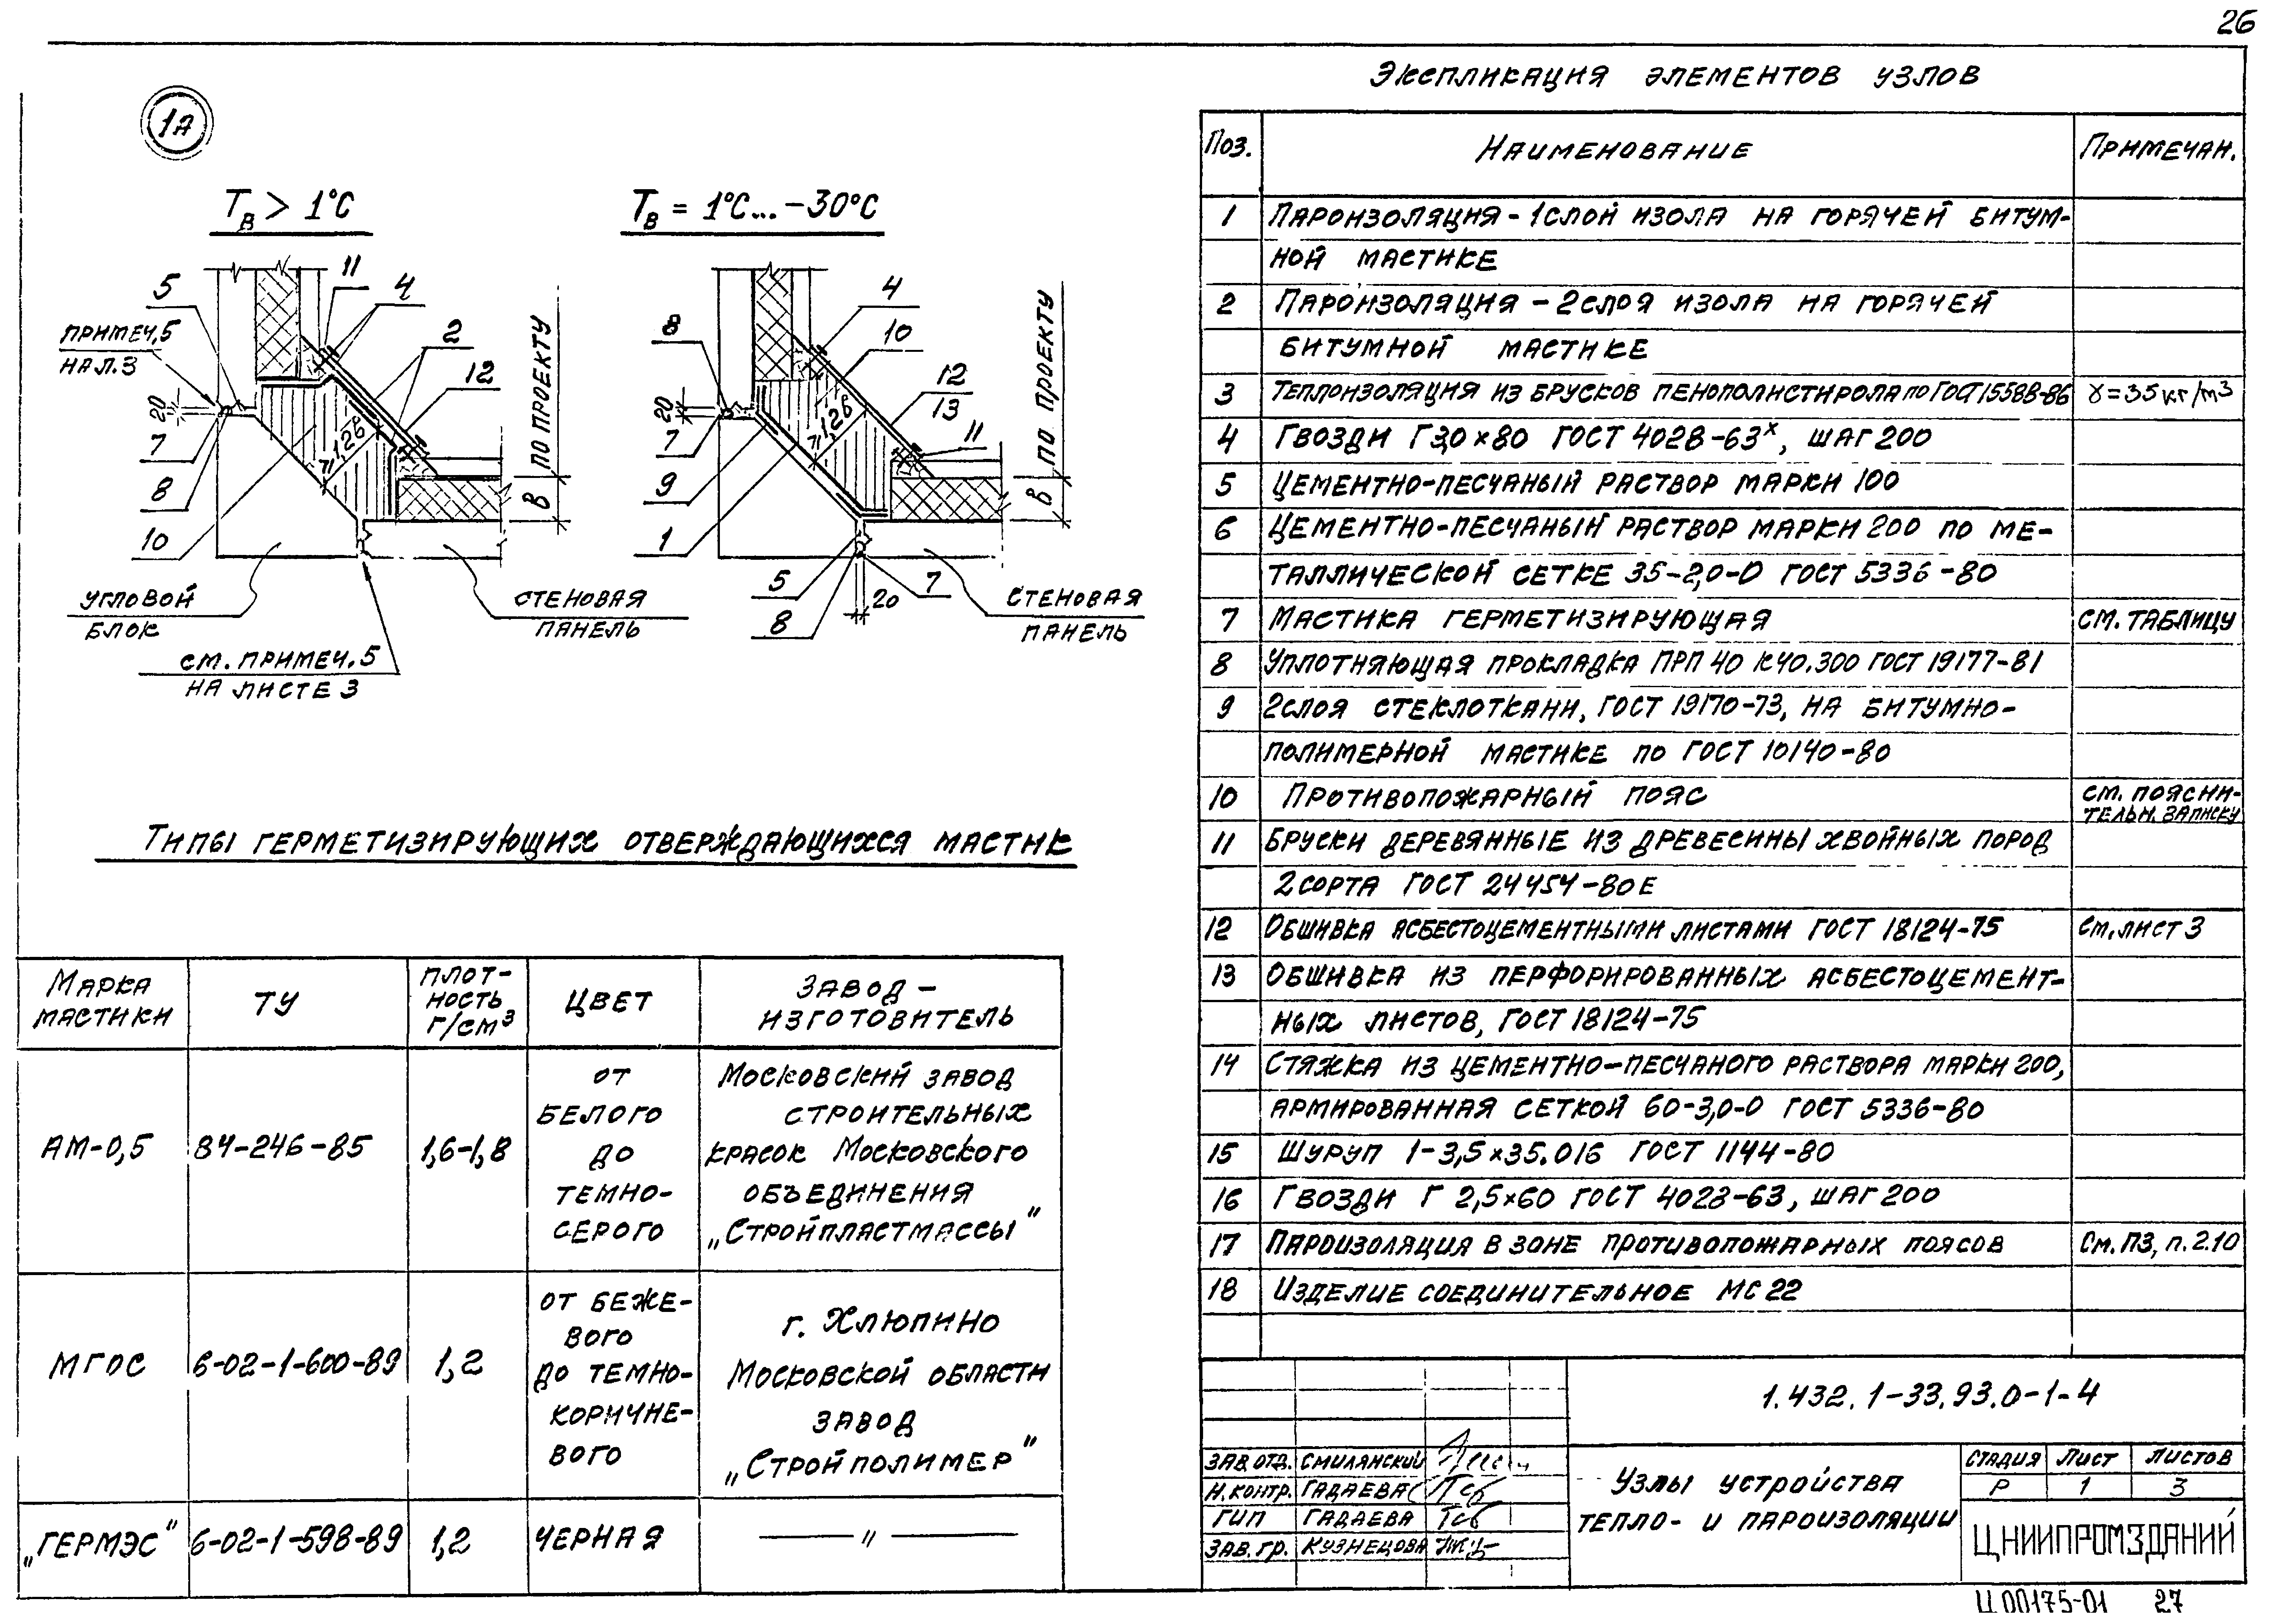 26
1А
Тв > 1°С
Тв = 1°С...-30°С
5
11
4
ПРИМЕЧ.5
НА Л.3
2
12
20
7
8
10
1,2в
ПО ПРОЕКТУ
в
УГЛОВОЙ
БЛОК
СТЕНОВАЯ
ПАНЕЛЬ
СМ. ПРИМЕЧ.5
НА ЛИСТЕ 3
8
4
10
12
13
11
20
7
9
1
1,2в
ПО ПРОЕКТУ
в
5
8
20
7
СТЕНОВАЯ
ПАНЕЛЬ
Типы герметизирующих отверждающихся мастик
Марка мастики | ТУ | Плотность г/см³ | Цвет | Завод-изготовитель
АМ-0,5 | 84-246-85 | 1,6-1,8 | от белого до темно-серого | Московский завод строительных красок Московского объединения „Стройпластмассы"
МГОС | 6-02-1-600-89 | 1,2 | от бежевого до темно-коричневого | г. Хлюпино Московской области завод „Стройполимер"
„ГЕРМЭС" | 6-02-1-598-89 | 1,2 | черная | — " —
Экспликация элементов узлов
Поз. | Наименование | Примечан.
1 Пароизоляция - 1 слой изола на горячей битум-
ной мастике
2 Пароизоляция - 2 слоя изола на горячей
битумной мастике
3 Теплоизоляция из брусков пенополистирола по ГОСТ 15588-86 γ=35кг/м³
4 Гвозди Г3,0×80 ГОСТ 4028-63ˣ, шаг 200
5 Цементно-песчаный раствор марки 100
6 Цементно-песчаный раствор марки 200 по ме-
таллической сетке 35-2,0-0 ГОСТ 5336-80
7 Мастика герметизирующая см. таблицу
8 Уплотняющая прокладка ПРП 40 К40.300 ГОСТ 19177-81
9 2 слоя стеклоткани, ГОСТ 19170-73, на битумно-
полимерной мастике по ГОСТ 10140-80
10 Противопожарный пояс см. поясни-
тельн. записку
11 Бруски деревянные из древесины хвойных пород
2 сорта ГОСТ 24454-80Е
12 Обшивка асбестоцементными листами ГОСТ 18124-75 См. лист 3
13 Обшивка из перфорированных асбестоцемент-
ных листов, ГОСТ 18124-75
14 Стяжка из цементно-песчаного раствора марки 200,
армированная сеткой 60-3,0-0 ГОСТ 5336-80
15 Шуруп 1-3,5×35.016 ГОСТ 1144-80
16 Гвозди Г 2,5×60 ГОСТ 4028-63, шаг 200
17 Пароизоляция в зоне противопожарных поясов См. ПЗ, п. 2.10
18 Изделие соединительное МС 22
1.432.1-33.93.0-1-4
Зав. отд. Смилянский
Н. контр. Гадаева
ГИП Гадаева
Зав. гр. Кузнецова
Узлы устройства
тепло- и пароизоляции
Стадия Лист Листов
Р 1 3
ЦНИИПРОМЗДАНИЙ
Ц00175-01 27